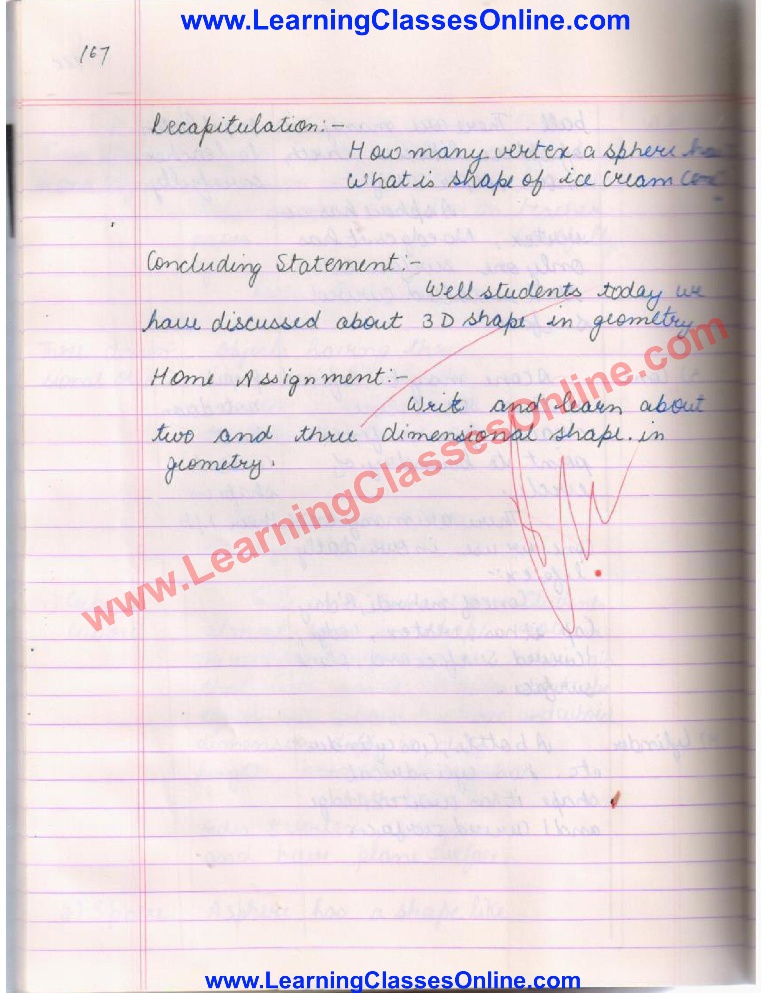 www.LearningClassesOnline.com
167
Recapitulation:-
How many vertex a sphere has
What is shape of ice cream cone
Concluding Statement:-
Well students today we
have discussed about 3D shape in geometry
Home Assignment:-
Write and learn about
two and three dimensional shape. in
geometry.
www.LearningClassesOnline.com
www.LearningClassesOnline.com